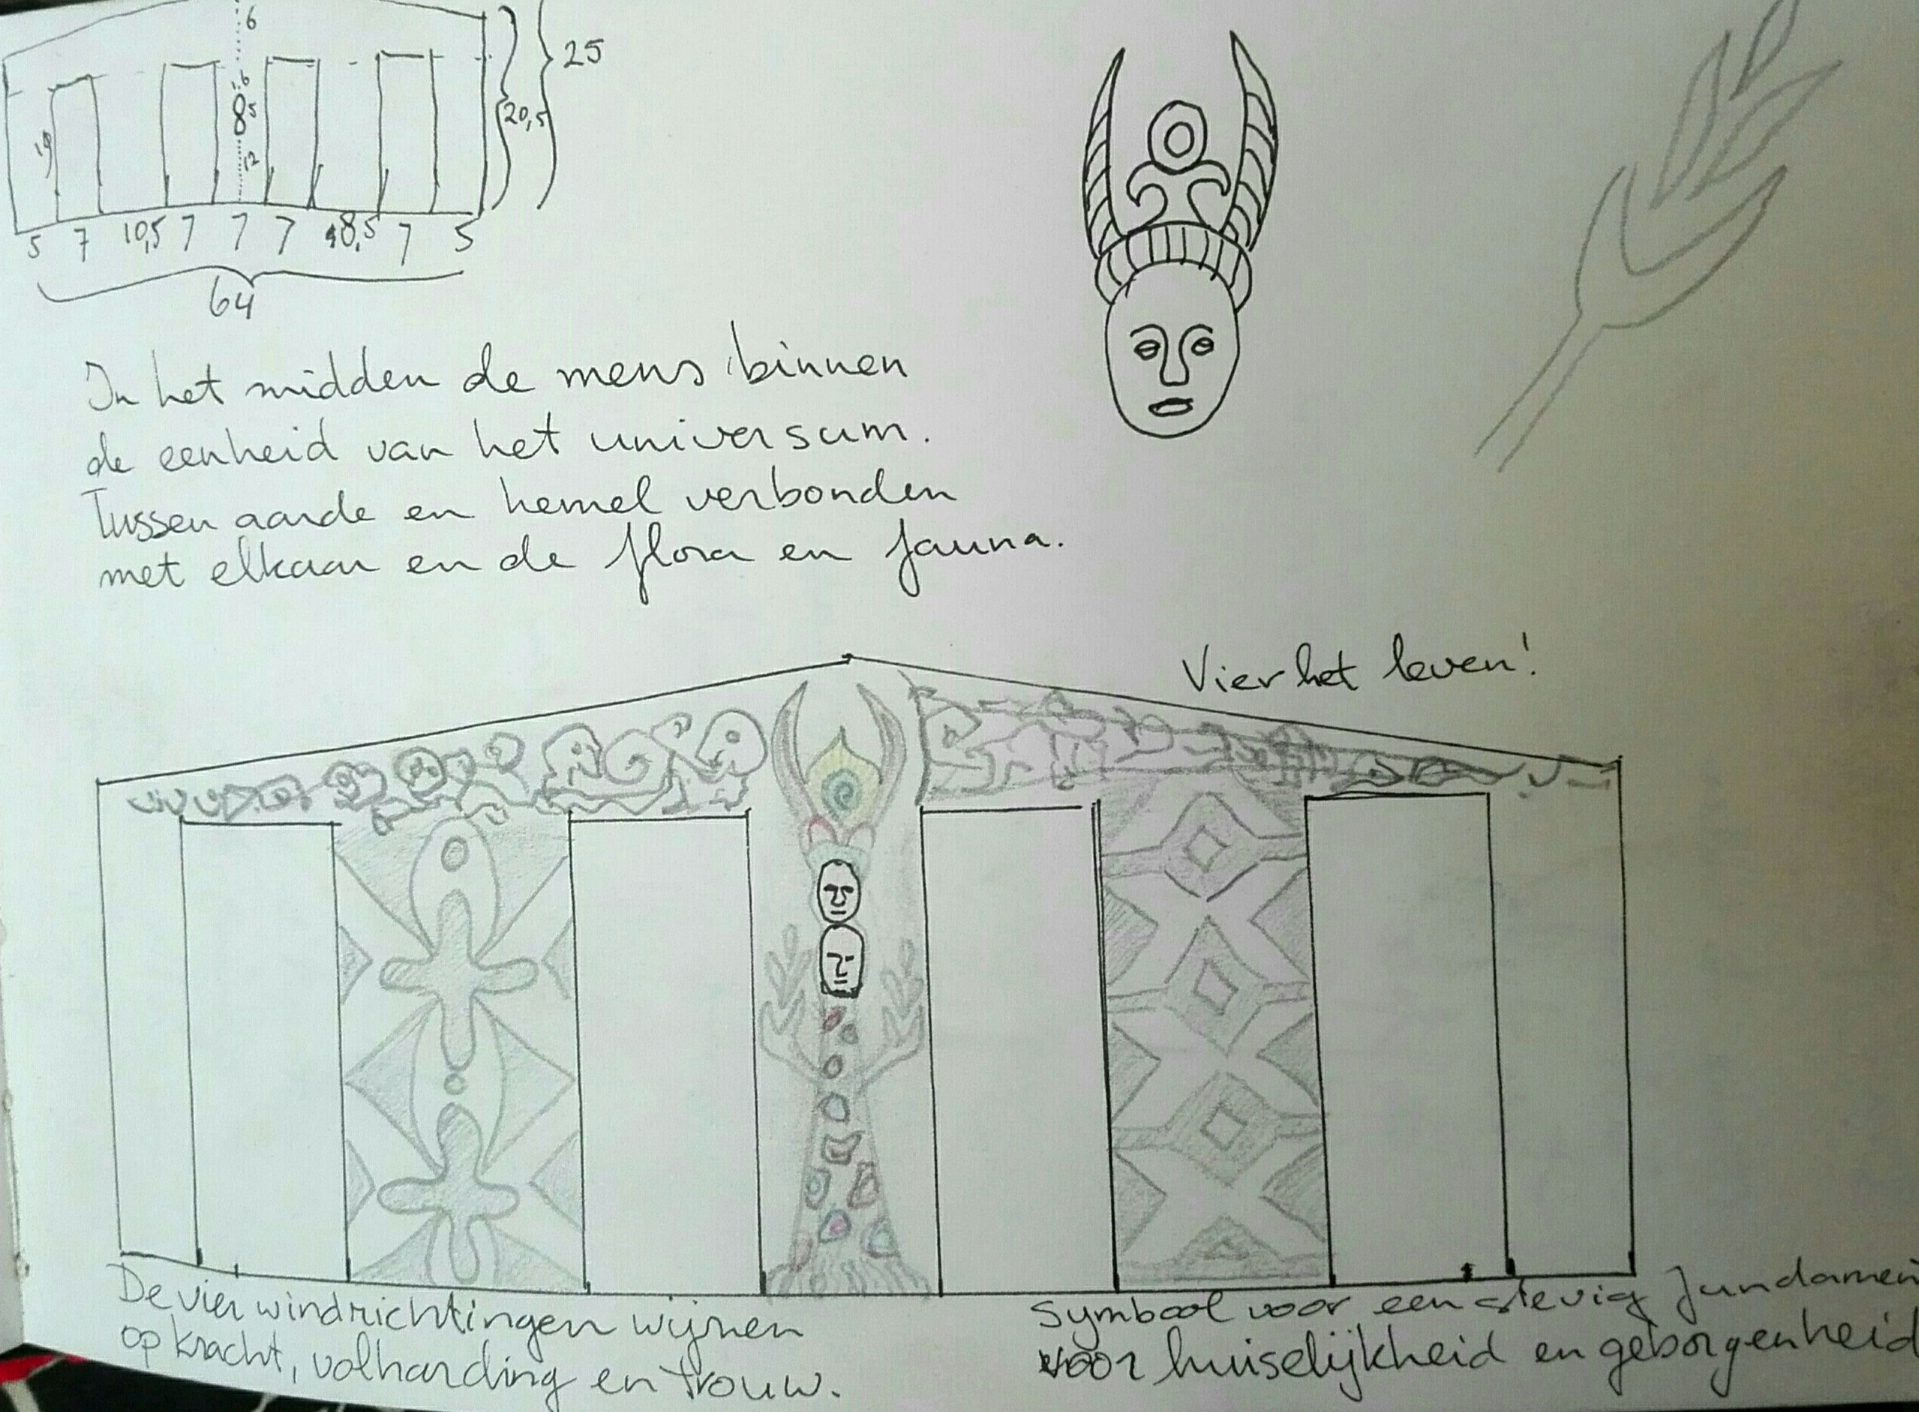 6
25
6
8,5
20,5
19
12
5 7 10,5 7 7 7 8,5 7 5
64
In het midden de mens binnen
de eenheid van het universum.
Tussen aarde en hemel verbonden
met elkaar en de flora en fauna.
Vier het leven!
De vier windrichtingen wijzen
op kracht, volharding en trouw.
Symbool voor een stevig fundamen
voor huiselijkheid en geborgenheid